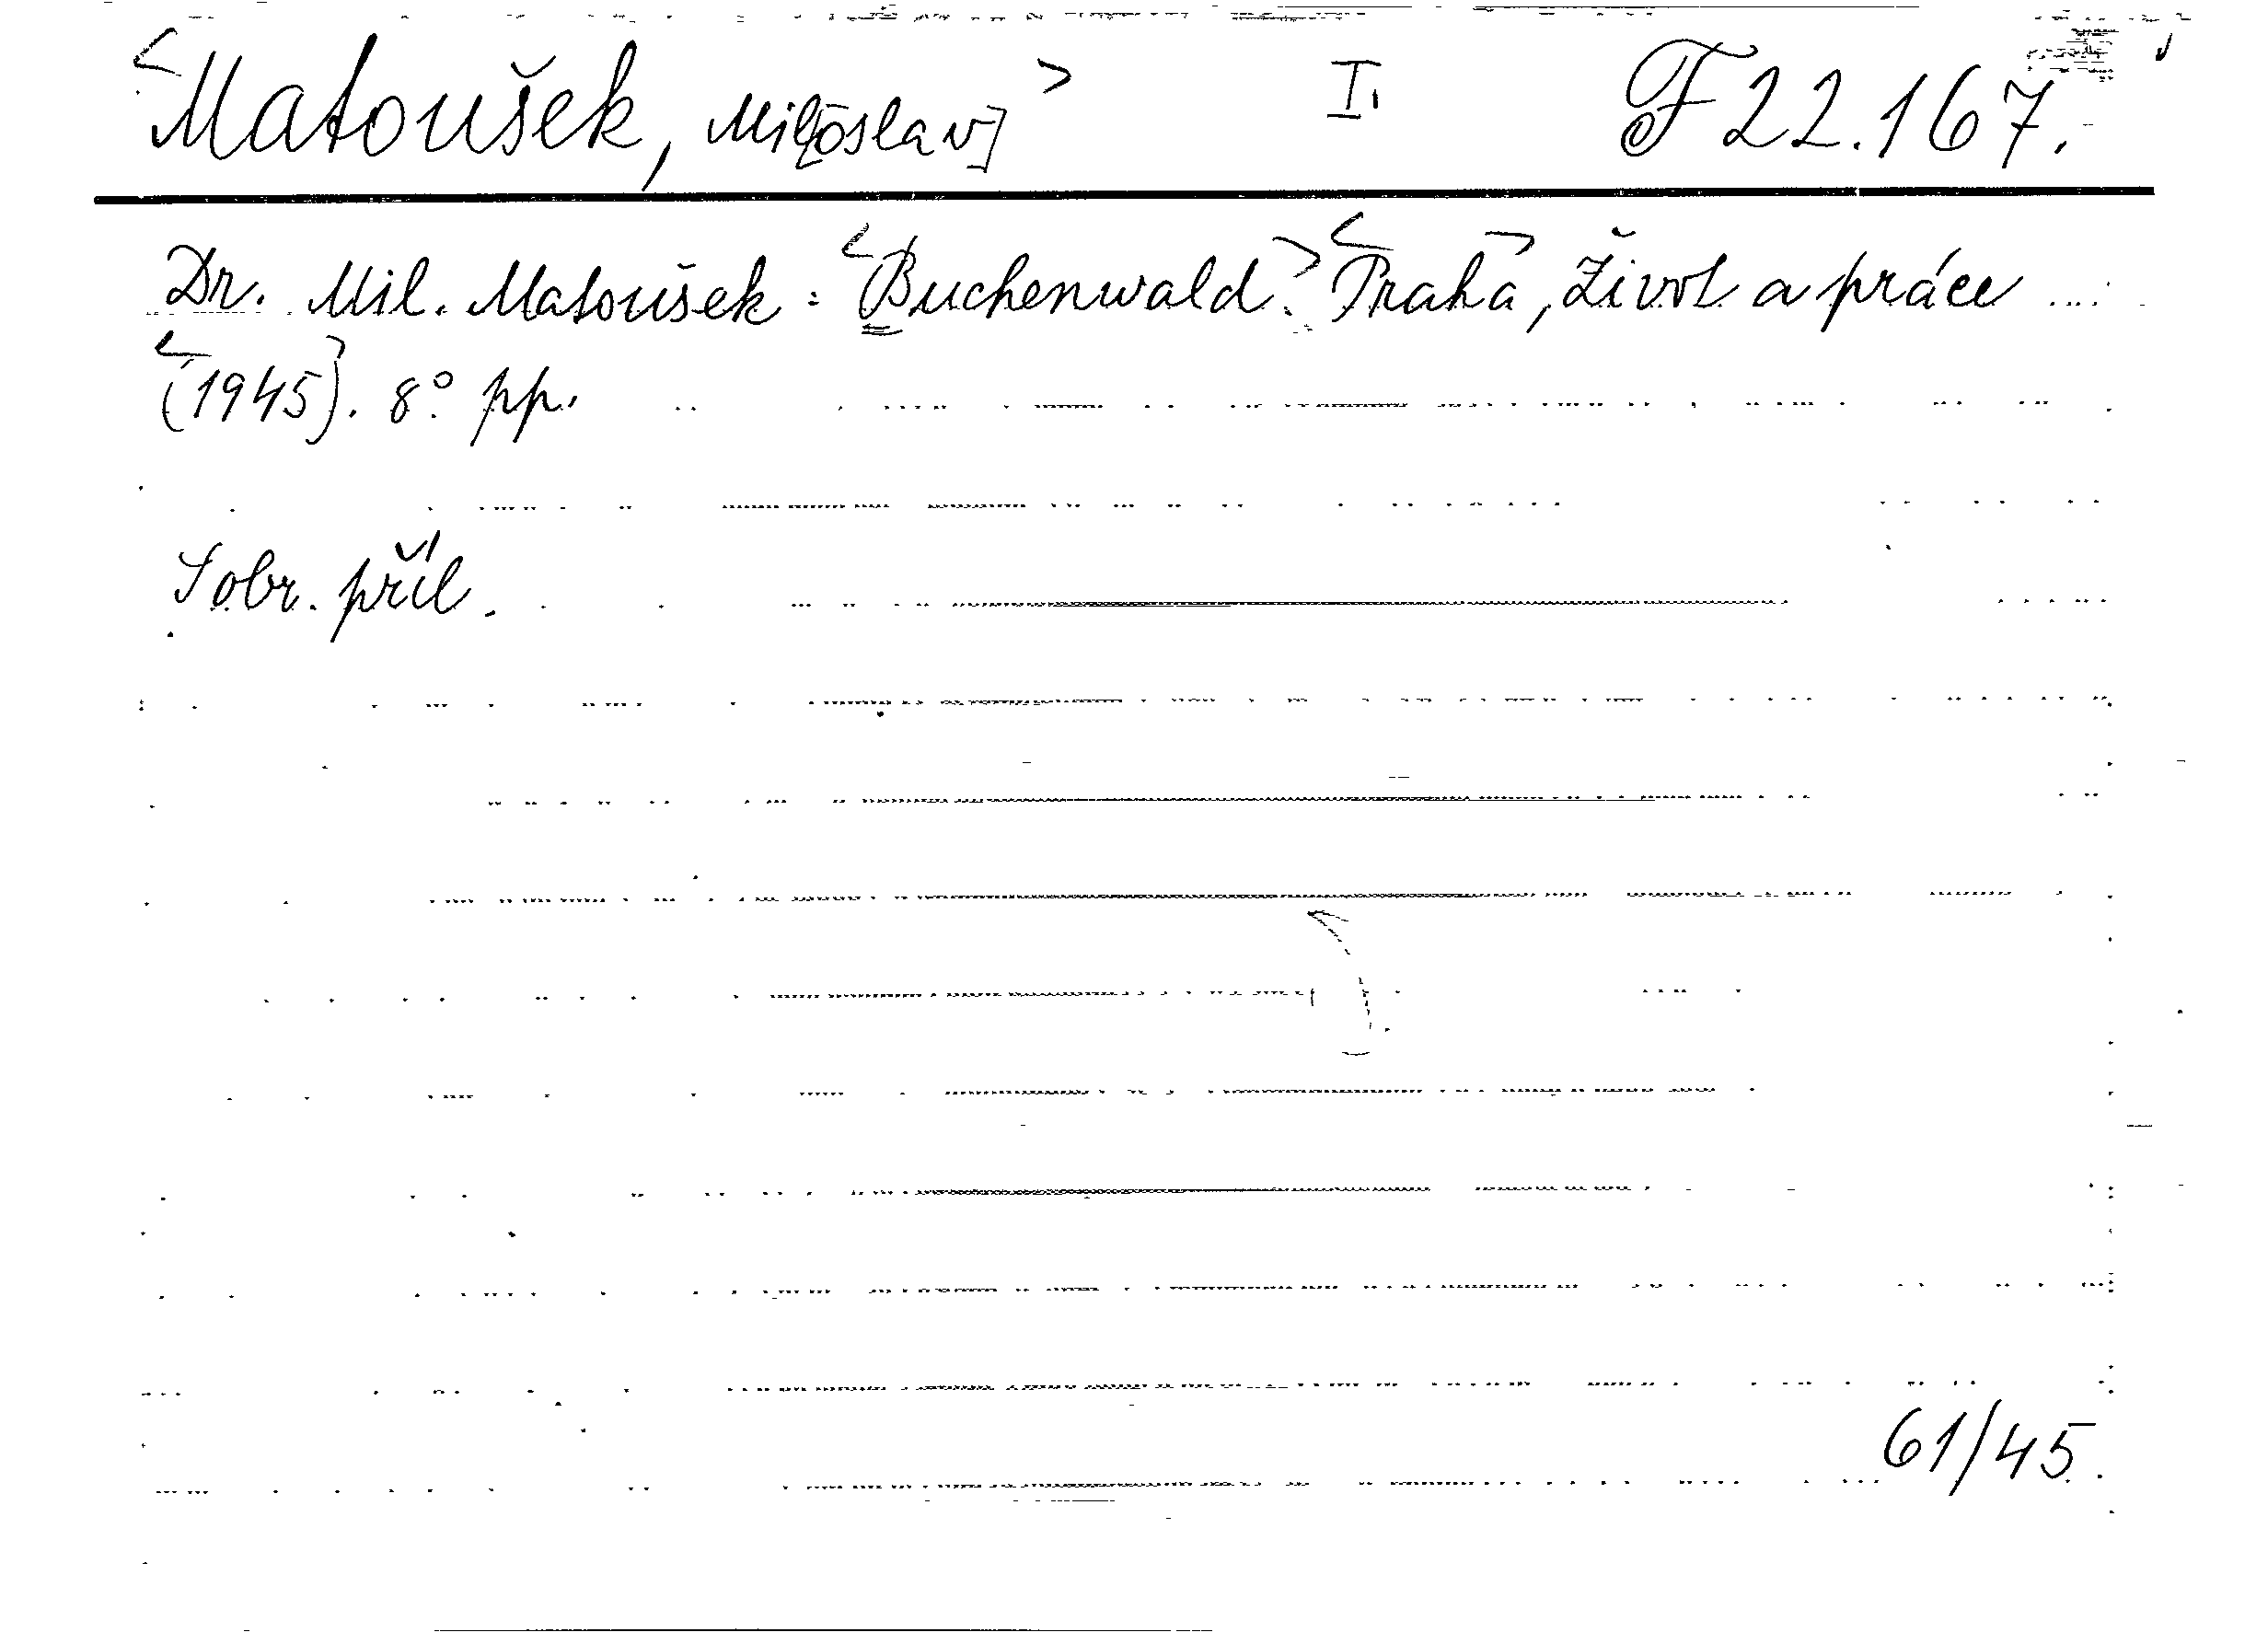 <Matoušek, Mil[oslav]> I. F 22.167.
Dr. Mil. Matoušek: <Buchenwald.> <Praha>, Život a práce
<(1945)>. 8° pp.
S obr. příl.
61/45.